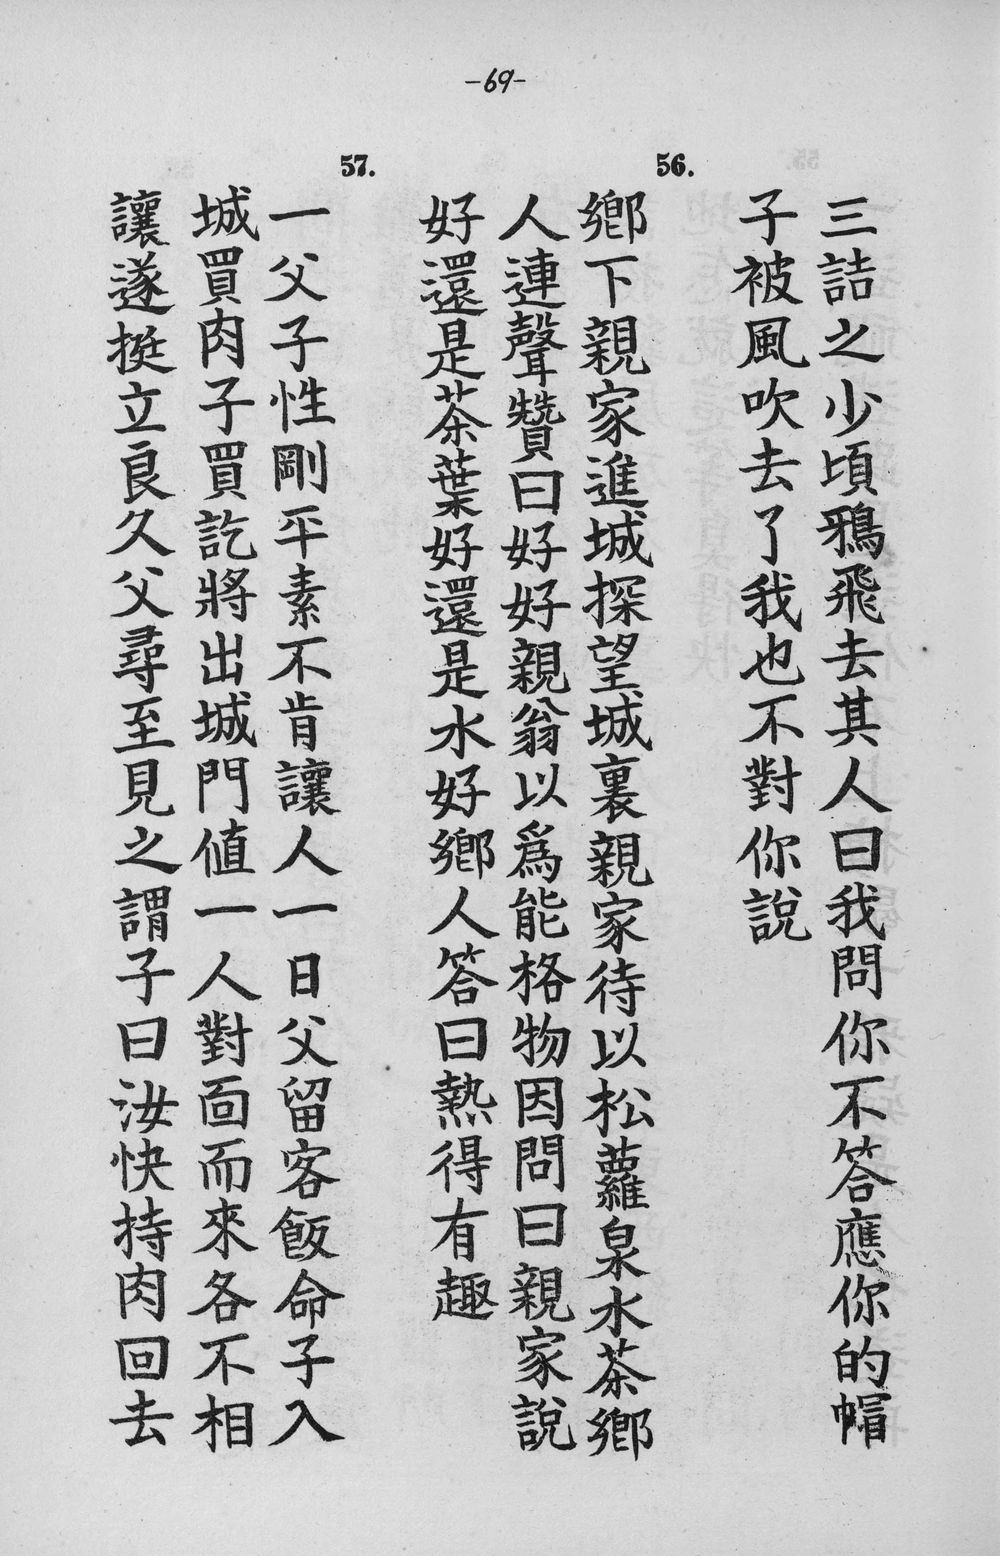 -69-
三詰之少頃鴉飛去其人曰我問你不答應你的帽
子被風吹去了我也不對你說
56.
鄉下親家進城探望城裏親家待以松蘿泉水茶鄉
人連聲贊曰好好親翁以爲能格物因問曰親家說
好還是茶葉好還是水好鄉人答曰熱得有趣
57.
一父子性剛平素不肯讓人一日父留客飯命子入
城買肉子買訖將出城門値一人對面而來各不相
讓遂挺立良久父尋至見之謂子曰汝快持肉回去